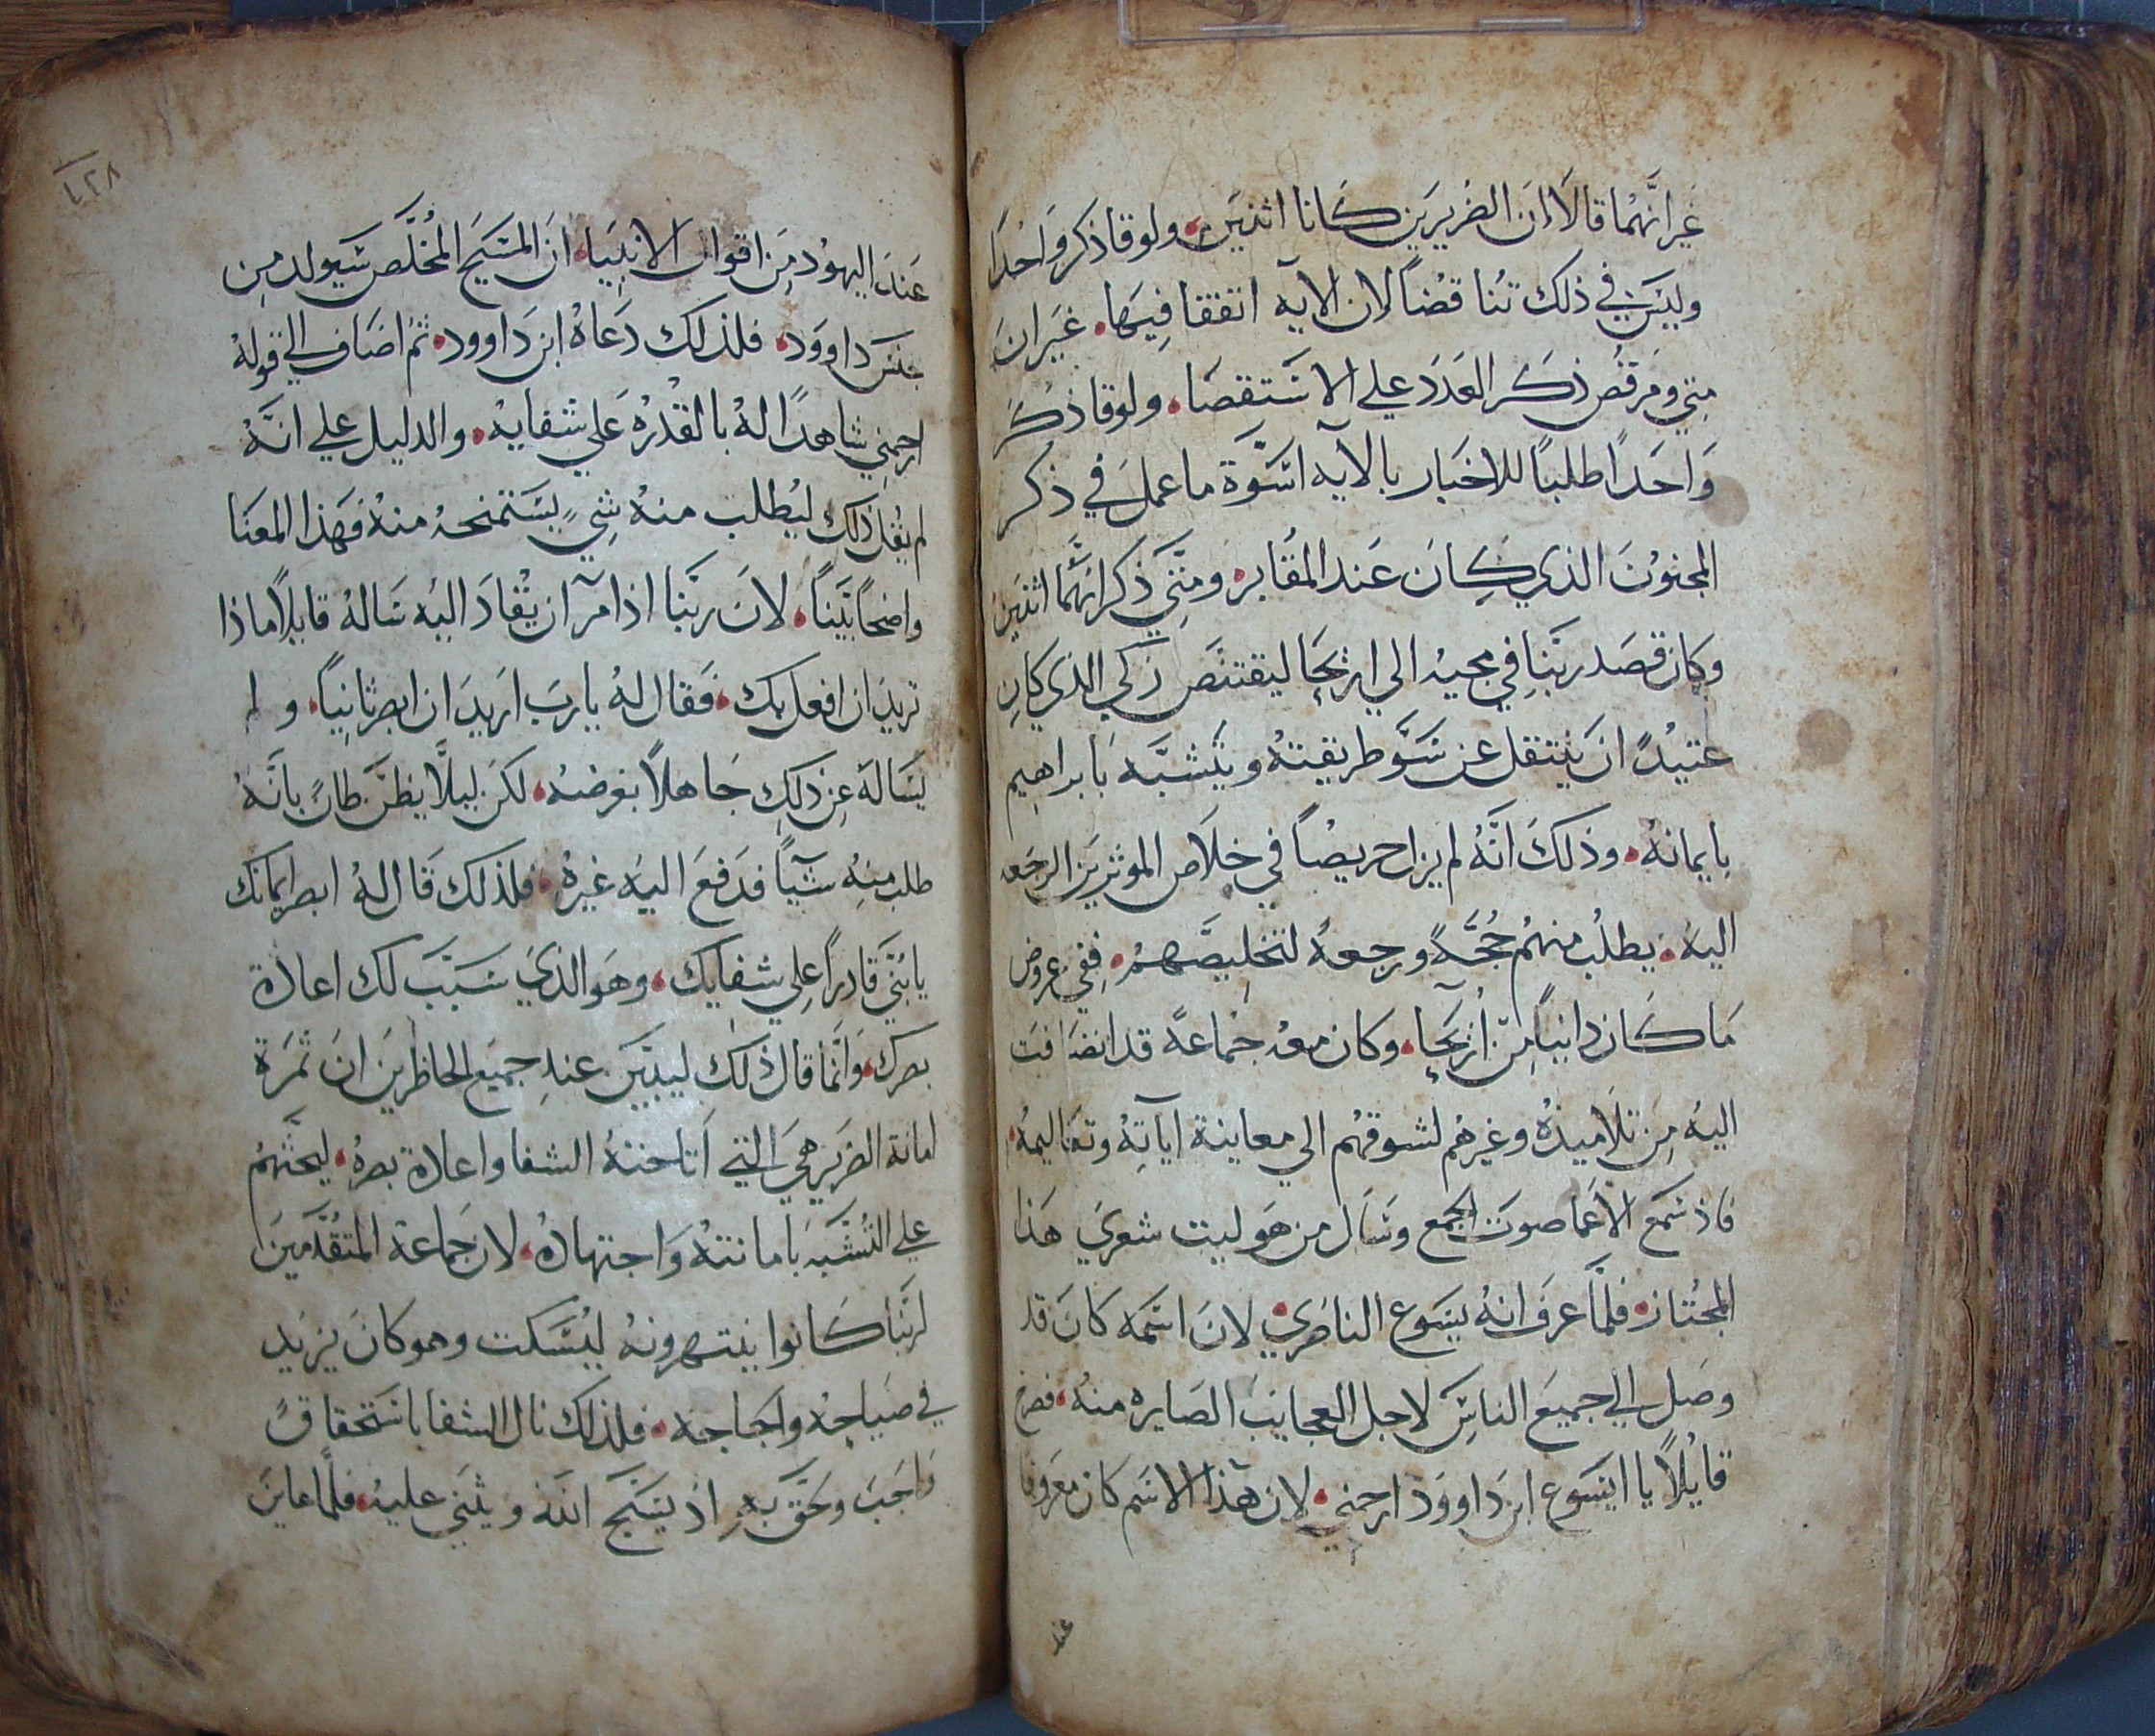 غير انهما قالا ان الضريرين كانا اثنين ولوقا ذكر واحدًا
وليس في ذلك تناقضًا لان الايه اتفقا فيها غير ان
متي ومرقص ذكر العدد علي الاستقصا ولوقا ذكر
واحدًا طلبًا للاخبار بالآيه اسوة ما عمل في ذكر
المجنون الذي كان عند المقابر ومتي ذكر انهما اثنين
وكان قصد ربنا في مجيه الي اريحا ليقتنص زكي الذي كان
عتيدً ان ينتقل عن سو طريقته ويتشبه بابراهيم
بايمانه وذلك انَّه لم يزل حريصًا في خلاص الموثرين الرجعه
اليه يطلب منهم حُجَّةً ورجعه لتخليصهم ففي عروض
ما كان دانيًا من أريحا وكان معه جماعةً قد انضافت
اليه من تلاميذه وغيرهم لشوقهم الي معاينة اياته وتعاليمه
فاذ سمع الاعما صوت الجمع وسال من هو ليت شعري هذا
المجتاز فلمّا عرف انه يسوع الناصري لان اسمه كان قد
وصل الي جميع الناس لاجل العجايب الصايره منه فصرخ
قايلاً يا ايسوع ابن داوود ارحمني لان هذا الاسم كان معروفا
عند
٦٢٨
عند اليهود من اقوال الانبيا ان المسيح المخلّص سيولد من
جنس داوود فلذلك دعاه ابن داوود ثم اضاف الي قوله
ارحمني شاهدًا له بالقدره علي شفايه والدليل علي انّه
لم يقل ذلك ليطلب منه شيٍ يستمنحه منه فهذا المعنا
واضحًا بيّنًا لان ربّنا اذ امر ان يقاد اليه ساله قايلاً ماذا
تريد ان افعل بك فقال له يارب اريد ان ابصر ثانيًا ولم
يساله عن ذلك جاهلاً بغرضه لكن ليلاَّ يظنّ ظانً بانّه
طلب منه شيًا فدفع اليه غيره فلذلك قال له ابصر ايمانك
يا بنيّ قادرًا علي شفايك وهو الذي سبّب لك اعادة
بصرك وانما قال ذلك ليبيّن عند جميع الحاظرين ان ثمرة
امانة الضرير هي التي اتاحته الشفا واعادة بصره ليحثهم
علي التشبه بامانته واجتهاده لان جماعة المتقدّمين
لربّنا كانوا ينتهرونه ليسكت وهو كان يزيد
في صياحه واجاجه فلذلك نال الشفا باستحقاقً
واجب وحق به اذ يسبح الله ويثني عليه فلمّا عاين